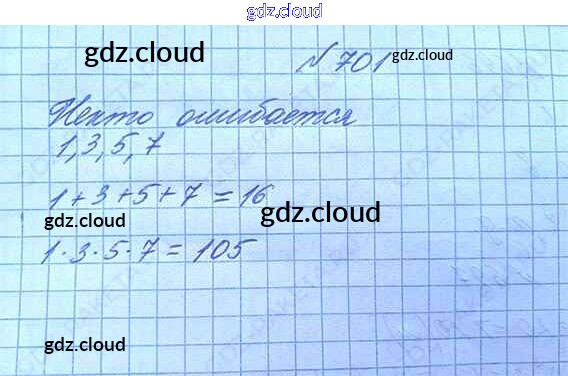 gdz.cloud
gdz.cloud
№ 701 gdz.cloud
Некто ошибается
1, 3, 5, 7
1 + 3 + 5 + 7 = 16
gdz.cloud
gdz.cloud
1 · 3 · 5 · 7 = 105
gdz.cloud
gdz.cloud